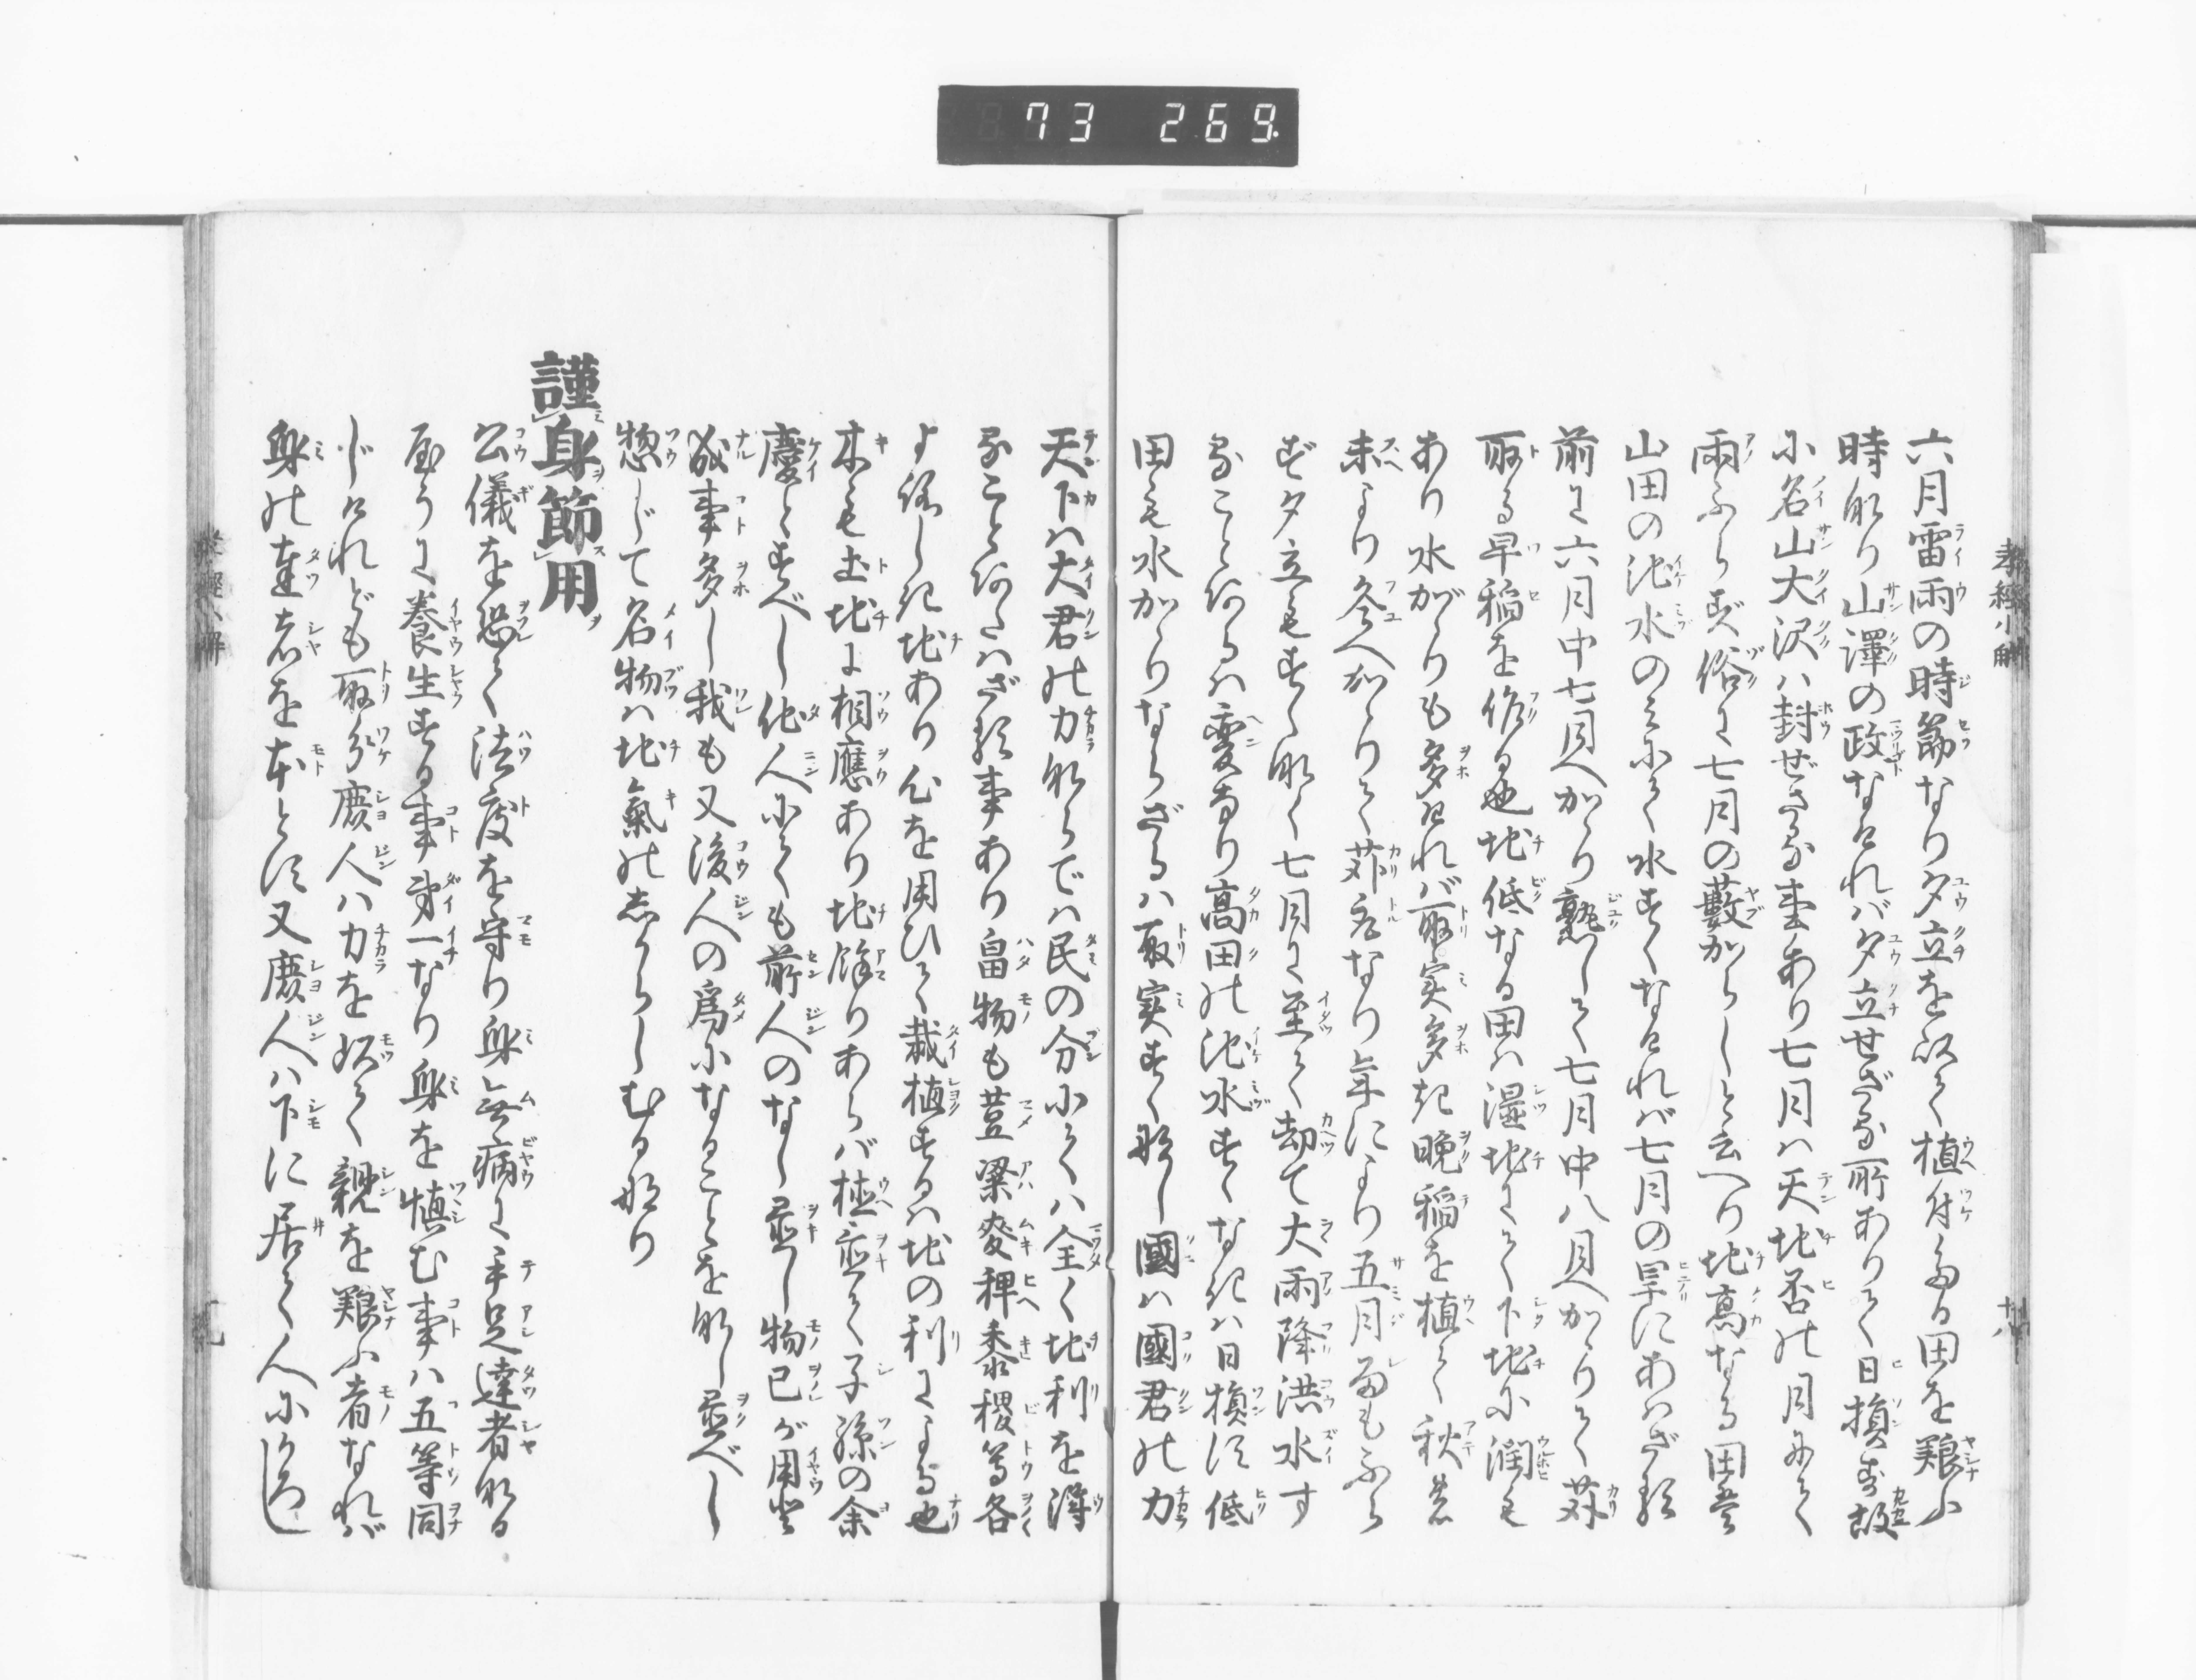 73 269.
孝經小解
六月雷雨の時節なり夕立を以て植付たる田を養ふ
時なり山澤の政なければ夕立せざる所ありて日損す故
に名山大沢は封ぜざる事あり七月は天地否の月にて
雨ふらず俗に七月の藪からしと云へり地高なる田并
山田の池水のみにて水すくなければ七月の旱にあはざる
前に六月中七月へかゝり熟して七月中八月へかゝりて苅
取る早稲を作る也地低なる田は湿地にて下地に潤も
あり水がゝりも多ければ取実多き晩稲を植て秋の
末より冬へかゝりて苅取なり年により五月雨もふら
ず夕立もすくなく七月に至て却て大雨降洪水す
ることあるは変なり高田の池水すくなきは日損し低
田も水かゝりならざるは取実すくなし國は國君の力
天下は大君の力ならでは民の分にては全く地利を得
ることあたはざる事あり畠物も荳粱麥稗黍稷等各
よろしき地あり心を用ひて栽植するは地の利による也
木も土地に相應あり地餘りあらば植置て子孫の余
慶とすべし他人にても前人のなし置し物己が用と
成事多し我も又後人の為になることをなし置べし
惣じて名物は地氣のしからしむるなり
謹身節用
公儀を恐て法度を守り身無病に手足達者なる
やうに養生する事第一なり身を慎む事は五等同
じけれども取分庶人は力を以て親を養ふ者なれば
身の達者を本とす又庶人は下に居て人に